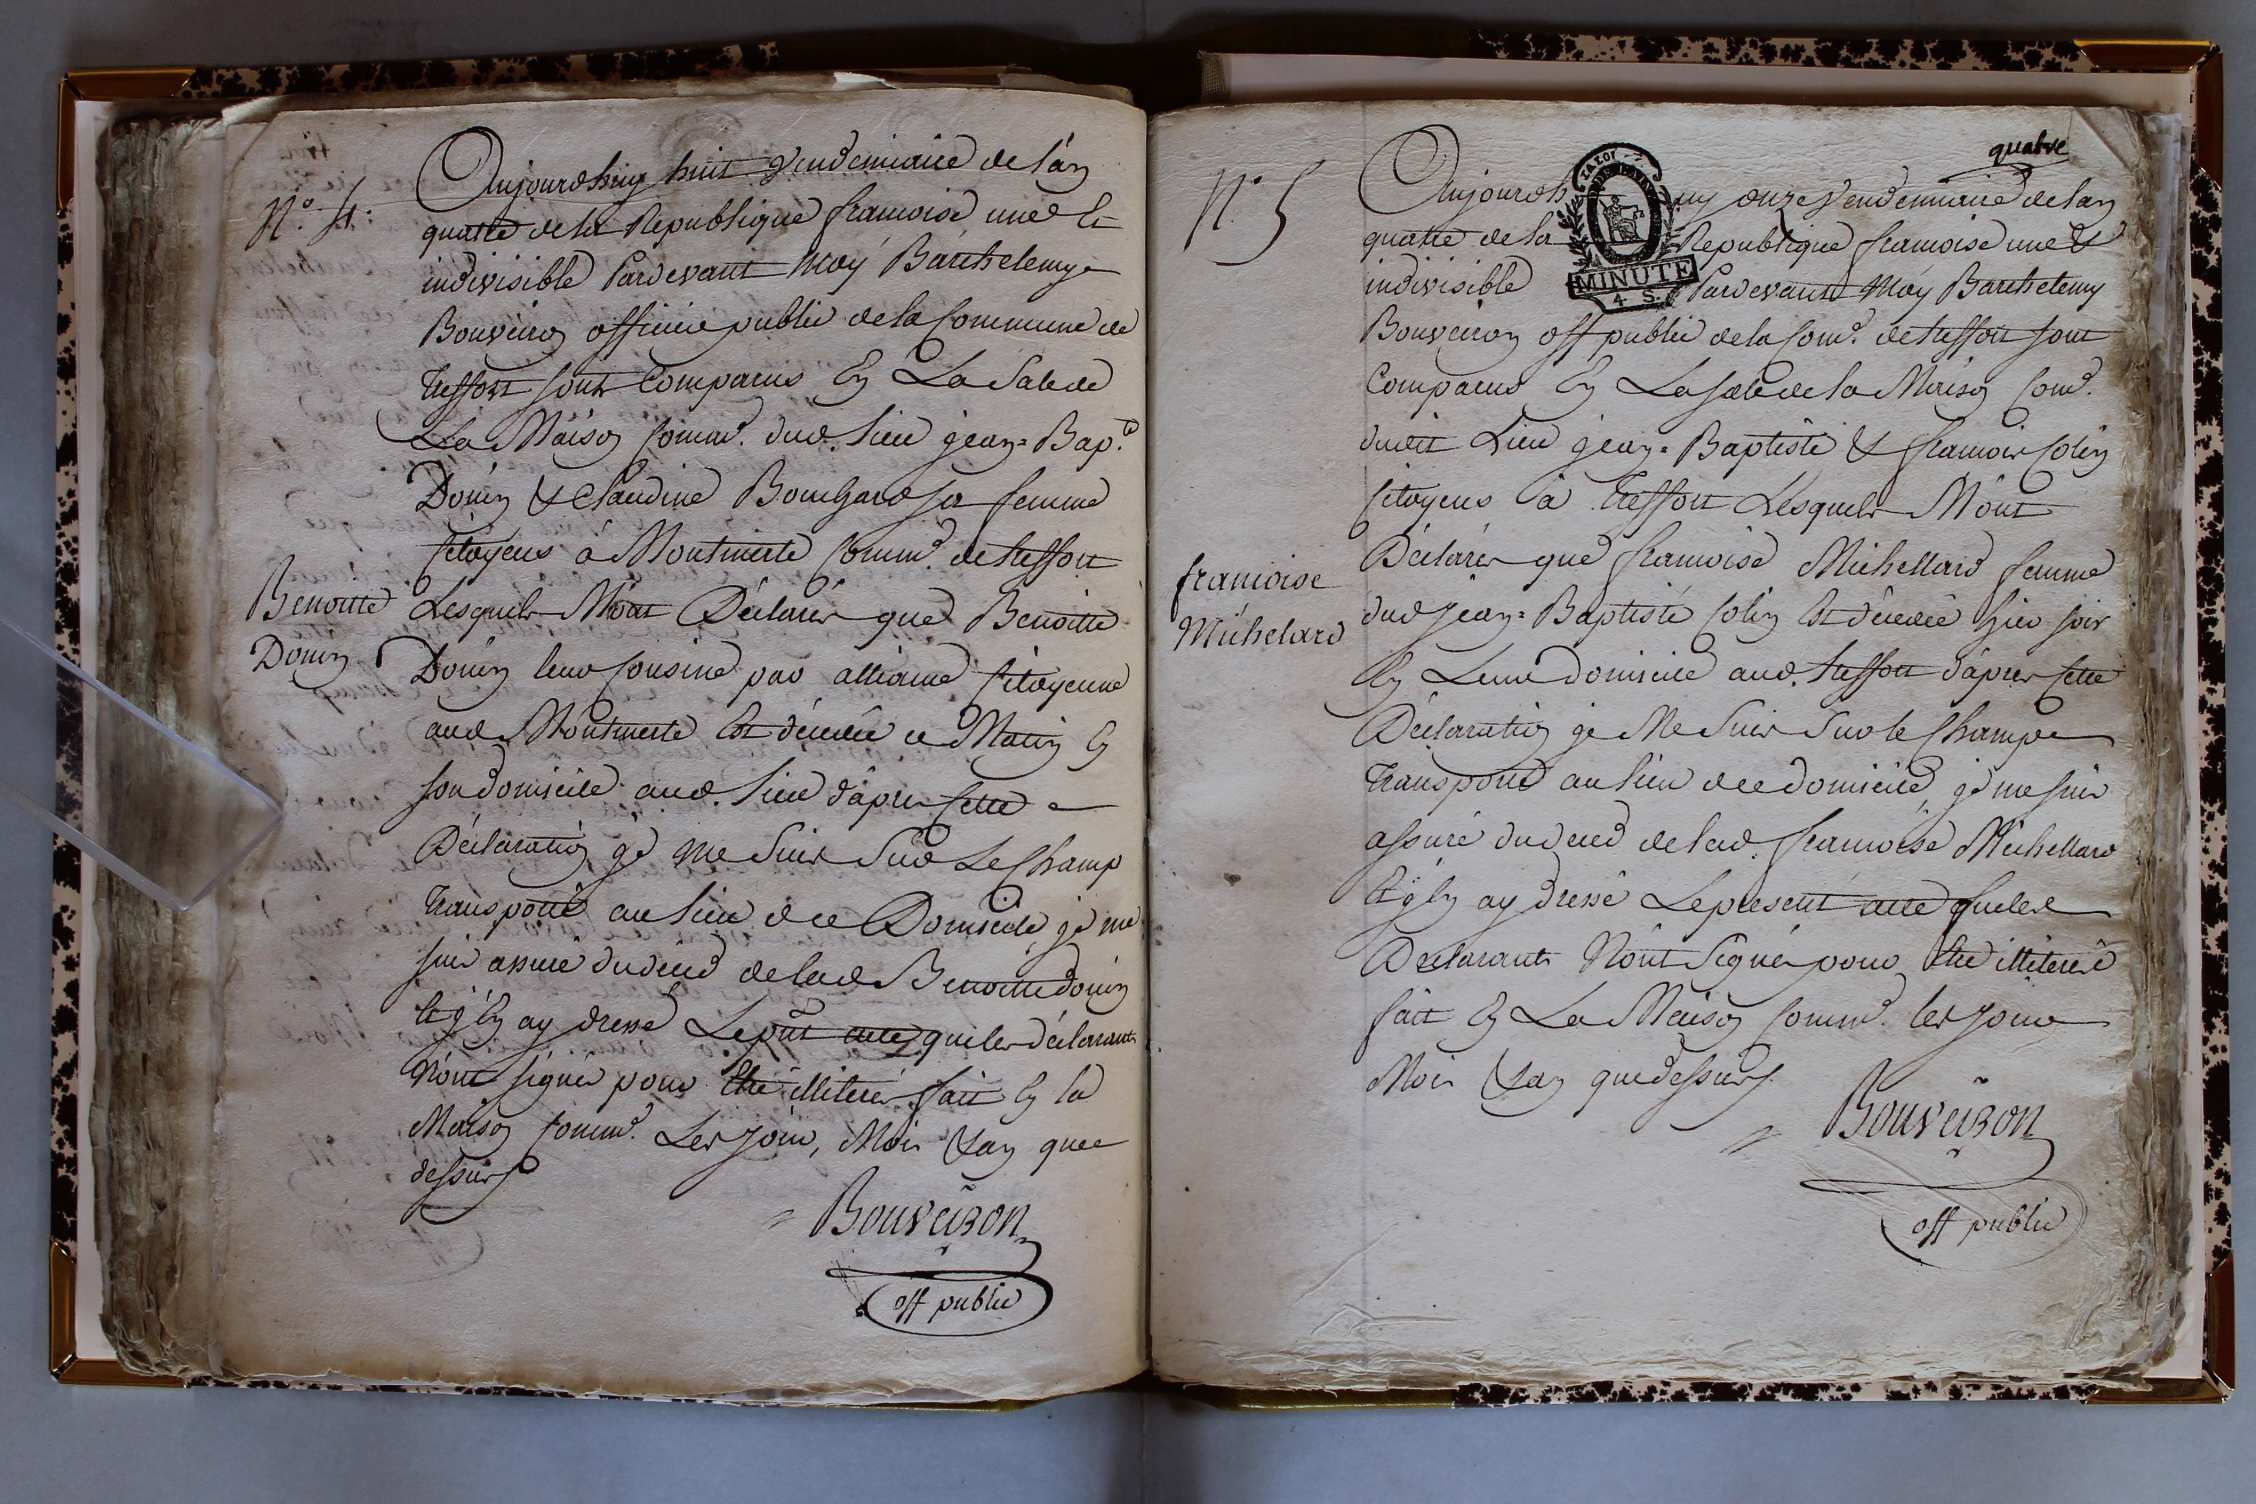 N.° 4:
Aujourdhuy huit Vendemiaire de l'an
quatre de la Republique francoise une et
indivisible Pardevant Moy Barthelemy
Bouveiron officier public de la Commune de
treffort sont Comparus En La Sale de
La Maison Comm.e dud. lieu jean=Bap.te
Donin & Claudine Bouchard sa femme
Citoyens à Montmerle Comm.e de treffort
Benoitte
Donin
Lesquels M'ont Déclarér que Benoitte
Donin leur Cousine par alliance Citoyenne
aud. Montmerle Est décédée ce Matin En
son domicile aud. lieu d'après Cette
Déclaration je me Suis Sur Le Champ
transporté au lieu de ce Domicile je me
suis assuré du décéd de lad. Benoitte donin
et j'En ay dressé Le pnt acte que les déclarants
N'ont signés pour Etre illiterés fait En la
Maison Comm.e Les jour, Mois & an que
dessus
Bouveiron
off public
quatre
N.° 5
Aujourdhuy onze Vendemiaire de lan
quatre de la Republique francoise une &
indivisible Pardevant Moy Barthelemy
MINUTE
4 S.
Bouveiron off public de la Com.e de treffort sont
Comparus En La sale de la Maison Com.e
dudit Lieu jean=Baptiste & francois Colin
Citoyens à treffort Lesquels M'ont
francoise
Michelard
Déclarér que francoise Michellard femme
dud jean=Baptiste Colin Est décédée hier soir
En Leur domicile aud. treffort d'après Cette
Déclaration je Me Suis Sur le Champ
transporté au lieu de ce domicile, je me suis
assuré du deced de lad. francoise Michellard
Et j'En ay dressé Le present acte que les
Declarants N'ont Signés pour Etre illiterés
fait En La Maison Comm.e les jour
Mois & an que dessus.
Bouveiron
off public